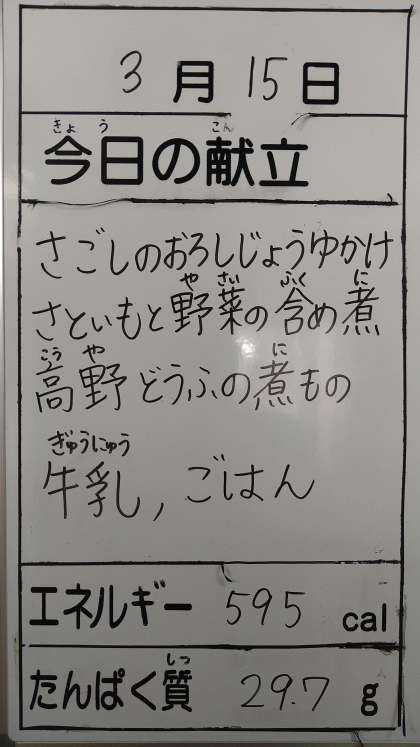 3月15日
きょう こん
今日の献立
さごしのおろしじょうゆかけ
や さい ふく に
さといもと野菜の含め煮
こう や に
高野どうふの煮もの
ぎゅうにゅう
牛乳,ごはん
エネルギー 595 cal
しつ
たんぱく質 29.7 g